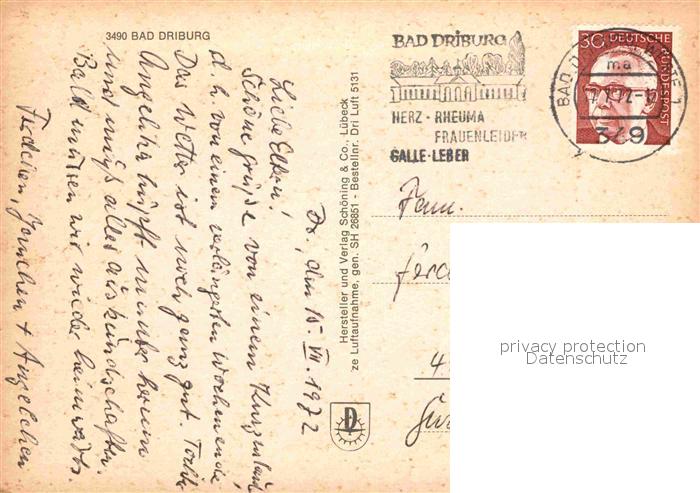 3490 BAD DRIBURG
Dr., den 15. VII. 1972
Liebe Eltern!
Schöne Grüße von einem Kurzurlaub
d. h. von einem verlängerten Wochenende
Das Wetter ist noch ganz gut. Tochter
Angelika hüpft munter herum
und muß alles auskundschaften.
Bald müssen wir wieder heimwärts.
Ferdchen, + Angelchen
Hersteller und Verlag Schöning & Co., Lübeck
ze Luftaufnahme, gen. SH 26851 - Bestellnr. Dri Luft 5131
BAD DRIBURG
HERZ · RHEUMA
FRAUENLEIDEN
GALLE · LEBER
30 DEUTSCHE
BUNDESPOST
BAD
ma
349
Fam.
Ferd
4
privacy protection
Datenschutz